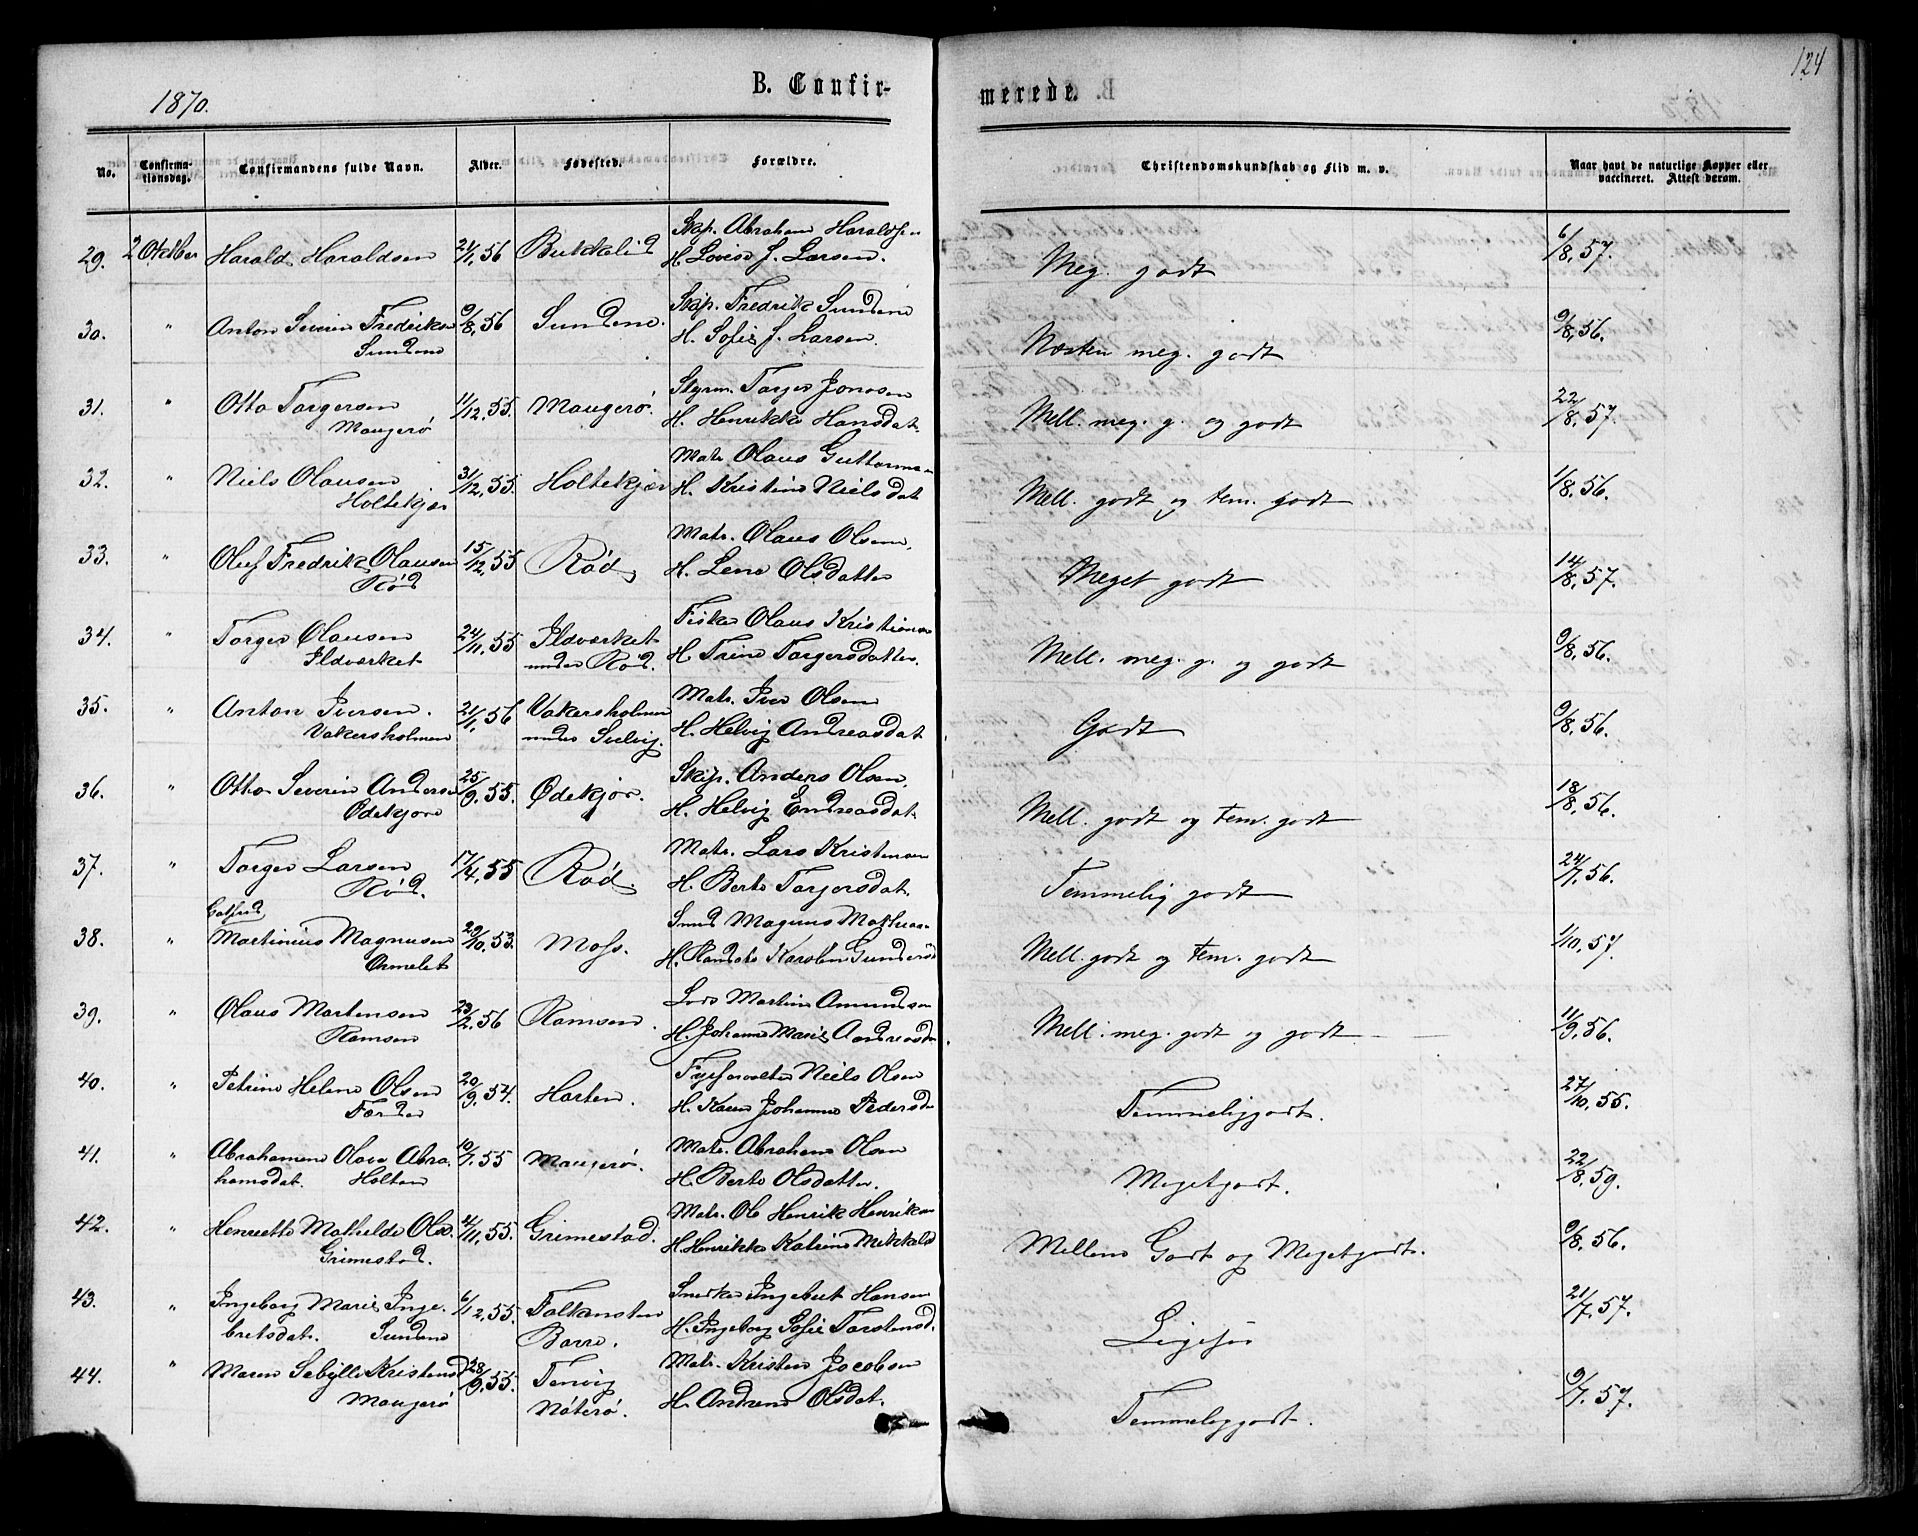 124
1870.
B. Confir-
merede.
No.
Confirma-
tionsdag.
Confirmandens fulde Navn.
Alder.
Fødested.
Forældre.
Christendomskundskab og Flid m. v.
Naar havt de naturlige Kopper eller
vaccineret. Attest derom.
29. 2 Oktber Harald Haraldsen 21/1, 56 Bukkelid Skp. Abraham Haraldsen Meg. godt 6/8, 57.
H. Lovise J. Larsen.
30. " Anton Severin Fredriksen 9/8, 56 Sundene. Skp. Fredrik Sundene Næsten meg. godt 9/8, 56.
Sundene H. Sofie J. Larsen.
31. " Otto Torgersen 11/12, 55. Maugerø. Styrm. Torger Jonasen Mell. meg. g. og godt 22/8, 57.
Maugerø H. Henrikke Hansdat.
32. " Niels Olausen 31/12, 55. Holtekjær Matr. Olaus Guttormsen Mell. godt og tem. godt 1/8, 56.
Holtekjær H. Kristine Nielsdat
33. " Oluf Fredrik Olausen 15/12, 55 Rød Matr. Olaus Olsen, Meget godt 14/8, 57.
Rød H. Lene Olsdatter
34. " Torger Olausen 24/11, 55 Ildværket Fisker Olaus Kristiansen Mell. meg. g. og godt 9/8, 56.
Ildværket under Rød. H. Trine Torgersdatter.
35. " Anton Iversen. 21/1, 56 Vakersholmen Matr. Iver Olsen Godt 9/8, 56.
Vakersholmen under Selvig. H. Helvig Andreasdat
36. " Otto Severin Andersen 25/9, 55. Ødekjær. Skip. Anders Olsen, Mell. godt og tem. godt 18/8, 56.
Ødekjær H. Helvig Endreasdat
37. " Torger Larsen 17/4, 55 Rød Matr. Lars Kristensen Temmelig godt 24/7, 56.
Rød. H. Berte Torgersdat.
Gotfred
38. " Martinius Magnusen 29/10, 53. Moss. Smed Magnus Mathias- Mell. godt og tem. godt 1/10, 57.
Ormelet H. Randate Karoline Gundersd
39. " Olaus Martensen 23/2, 56 Ramsen. Lods Martin Amundsen Mell. meg. godt og godt 11/9, 56.
Ramsen H. Johanne Marie Andreasda
40. " Petrine Helene Olsen 20/9, 54. Horten. Fyrforvalter Niels Olsen Temmeliggodt. 27/10, 55.
Færder H. Karen Johanne Pedersd
41. " Abrahamine Olava Abra- 10/7, 55 Maugerø. Matr. Abraham Olsen Megetgodt. 22/8, 59.
hamsdat. Holtan H. Berte Olsdatter.
42. " Henriette Mathilde Olsd. 4/11, 55. Grimestad. Matr. Ole Henrik Henriksen Mellem Godt og Megetgodt. 9/8, 56.
Grimestad. H. Henrikke Katrine Mikkelsd
43. " Ingeborg Marie Inge- 6/12, 55. Falkensten Snedker Ingebret Hansen Ligesaa 21/7, 57.
bretsdat. Sundene Borre. H. Ingeborg Sofie Torstensd.
44. " Maren Sebylle Kristensd 28/9, 55. Tenvig Matr. Kristen Jacobsen Temmeliggodt. 9/7, 57.
Maugerø Nøterø. H. Andrene Olsdat.